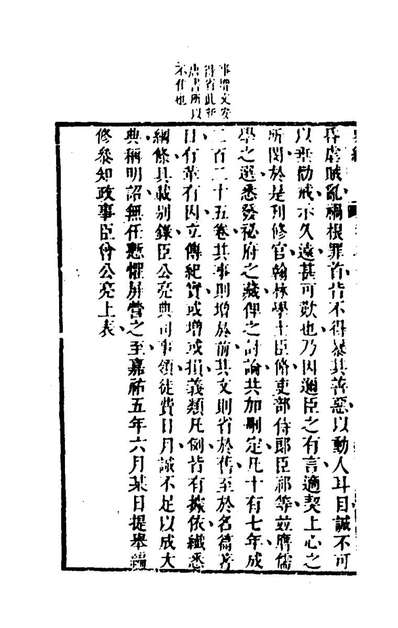 事增文安
得省此新
唐書所以
不佳也
昏虐賊亂禍根罪首皆不得暴其善惡以動人耳目誠不可
以垂勸戒示久遠甚可歎也乃因邇臣之有言適契上心之
所閔於是刊修官翰林學士臣脩吏部侍郎臣祁等竝膺儒
學之選悉發祕府之藏俾之討論共加刪定凡十有七年成
二百二十五卷其事則增於前其文則省於舊至於名篇著
目有革有因立傳紀實或增或損義類凡例皆有據依纖悉
綱條具載別錄臣公亮典司事領徒費日月誠不足以成大
典稱明詔無任慙懼屏營之至嘉祐五年六月某日提舉編
修參知政事臣曾公亮上表